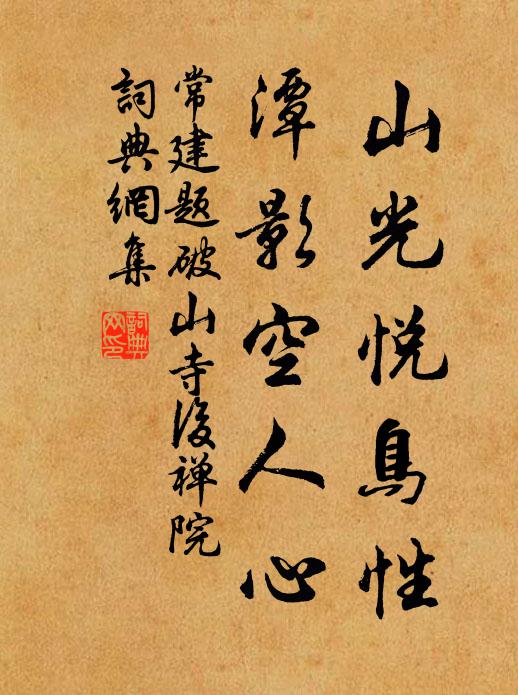 山光悦鳥性
潭影空人心
常建題破山寺後禅院
詞典網集
詞典网印